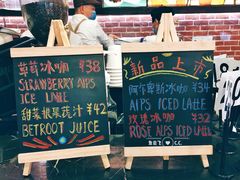 草莓冰咖 ¥38
STRAWBERRY AIPS
ICE LATTE
甜菜根果蔬汁 ¥42
BETROOT JUICE
新品上市
阿尔卑斯冰咖 ¥34
AIPS ICED LATTE
玫瑰冰咖 ¥32
ROSE AIPS ICED
LATTE